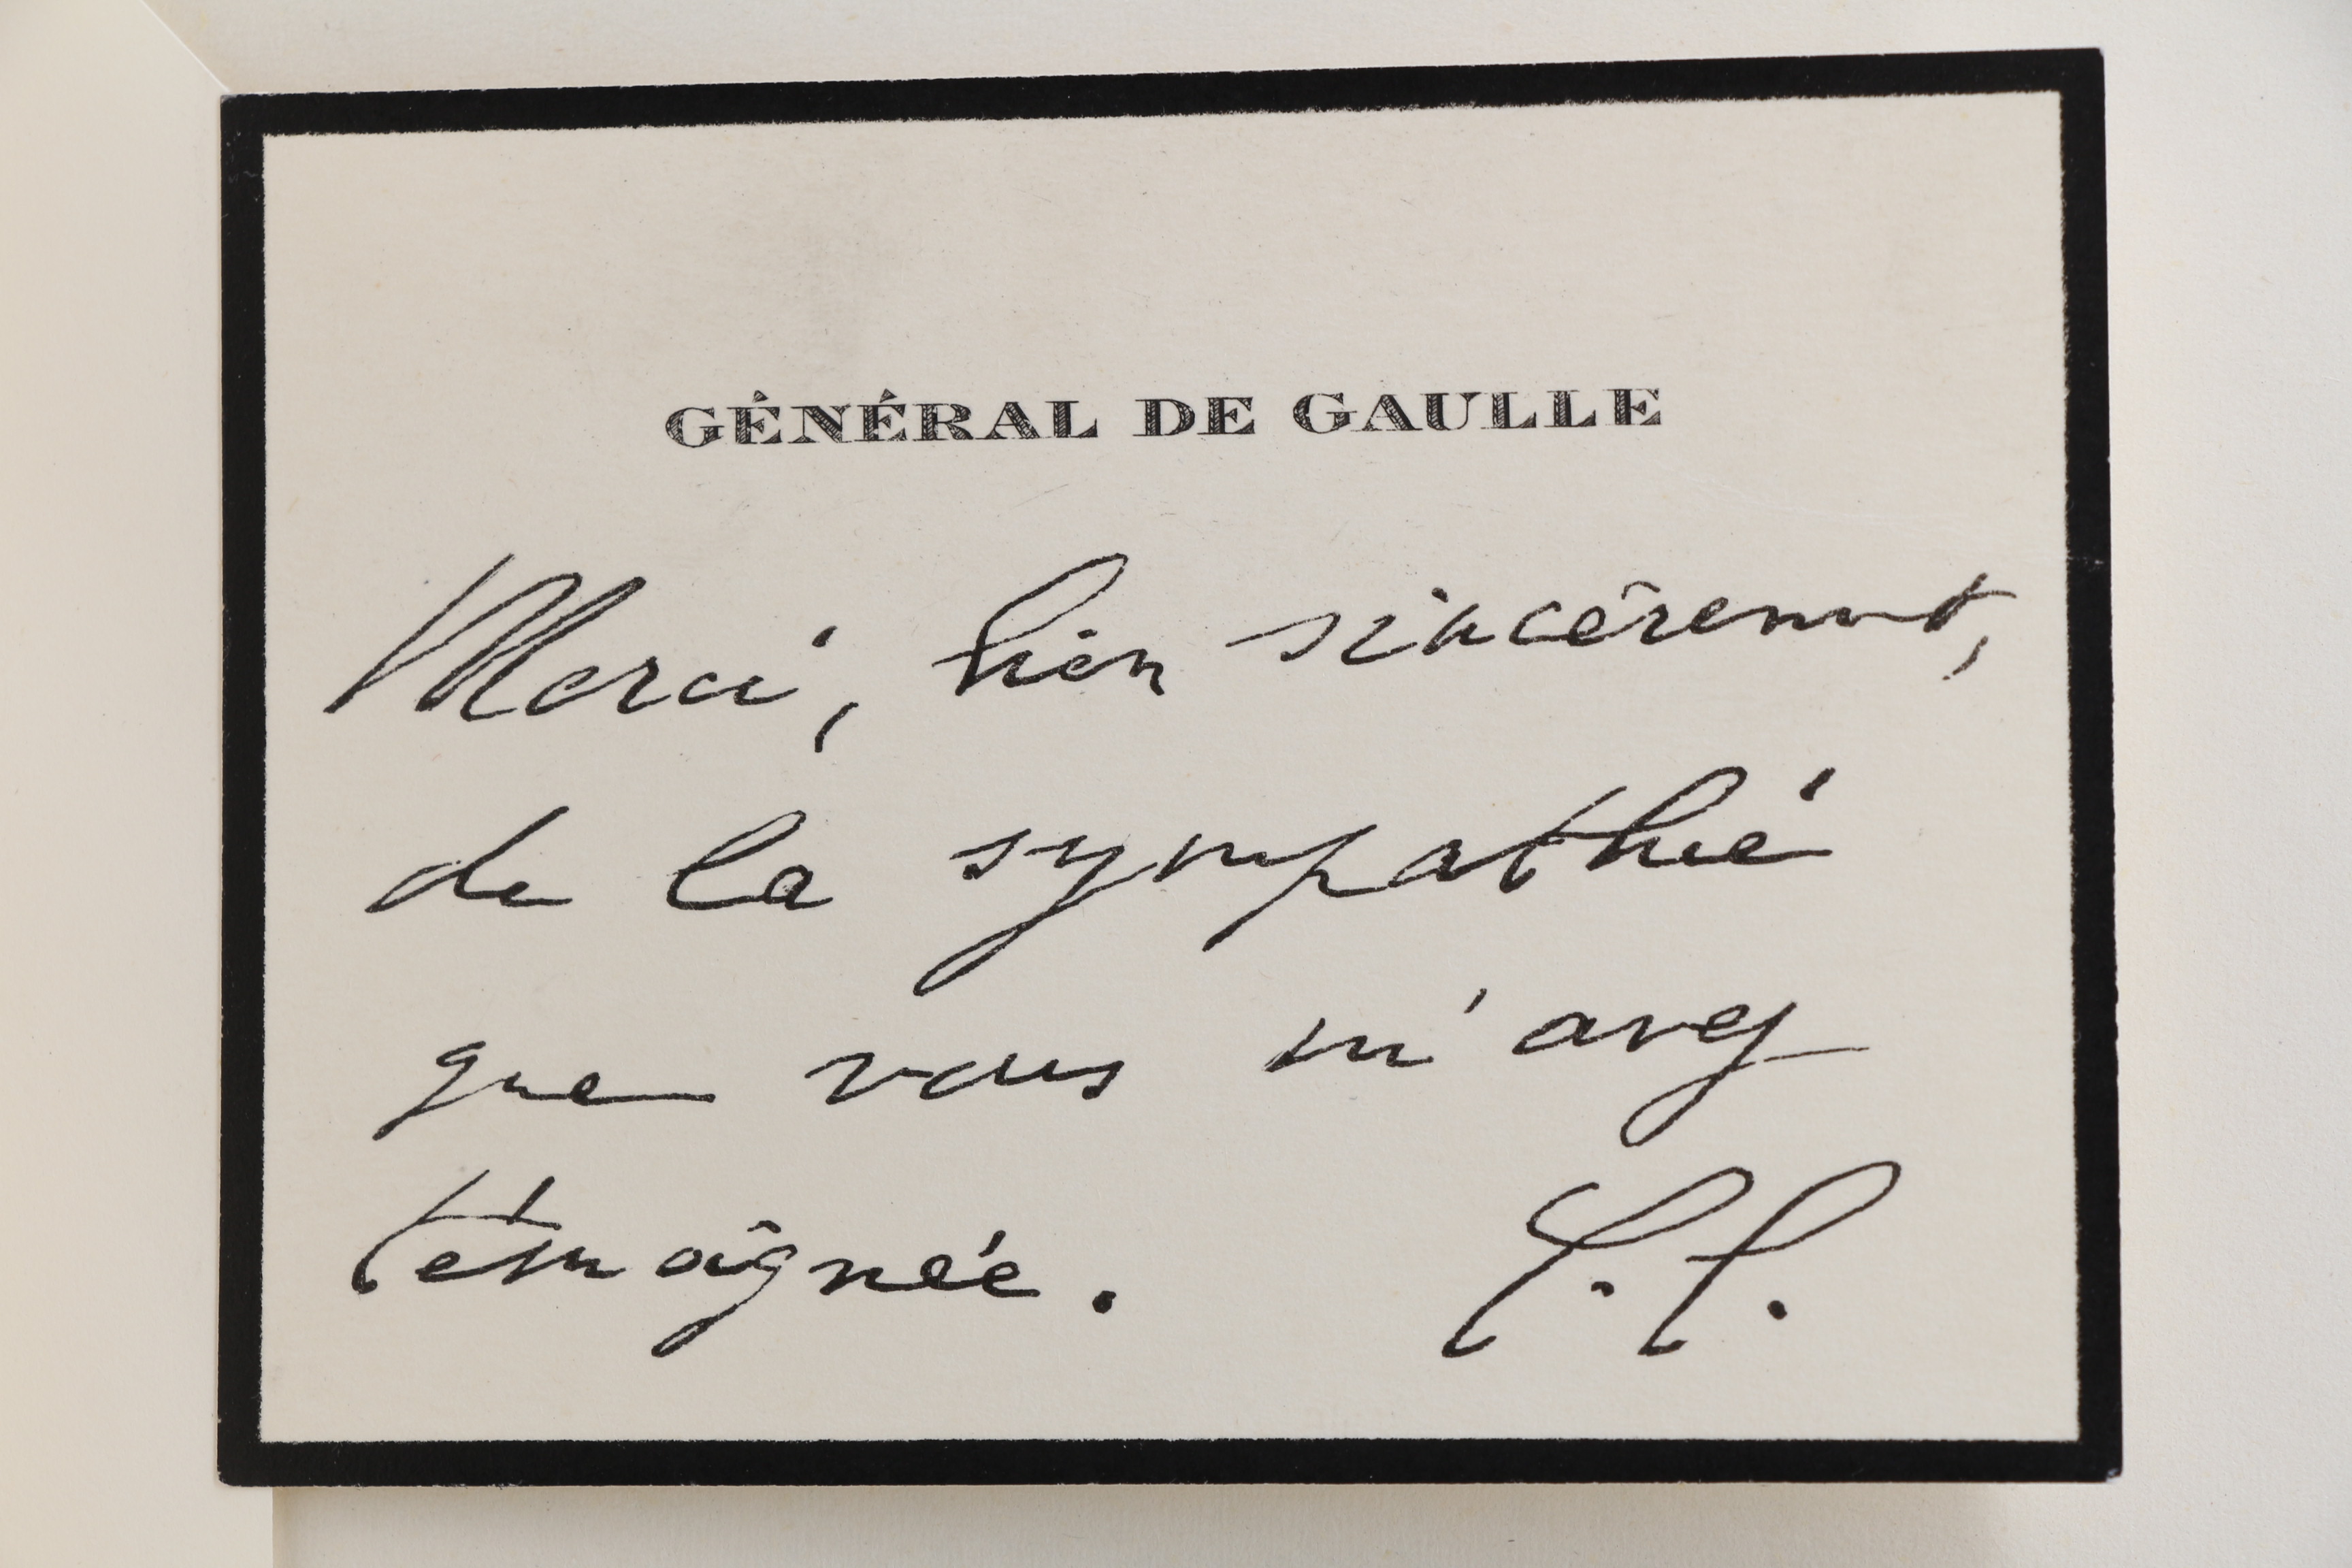 GÉNÉRAL DE GAULLE
Merci, bien sincèrement,
de la sympathie
que vous m'avez
témoignée.